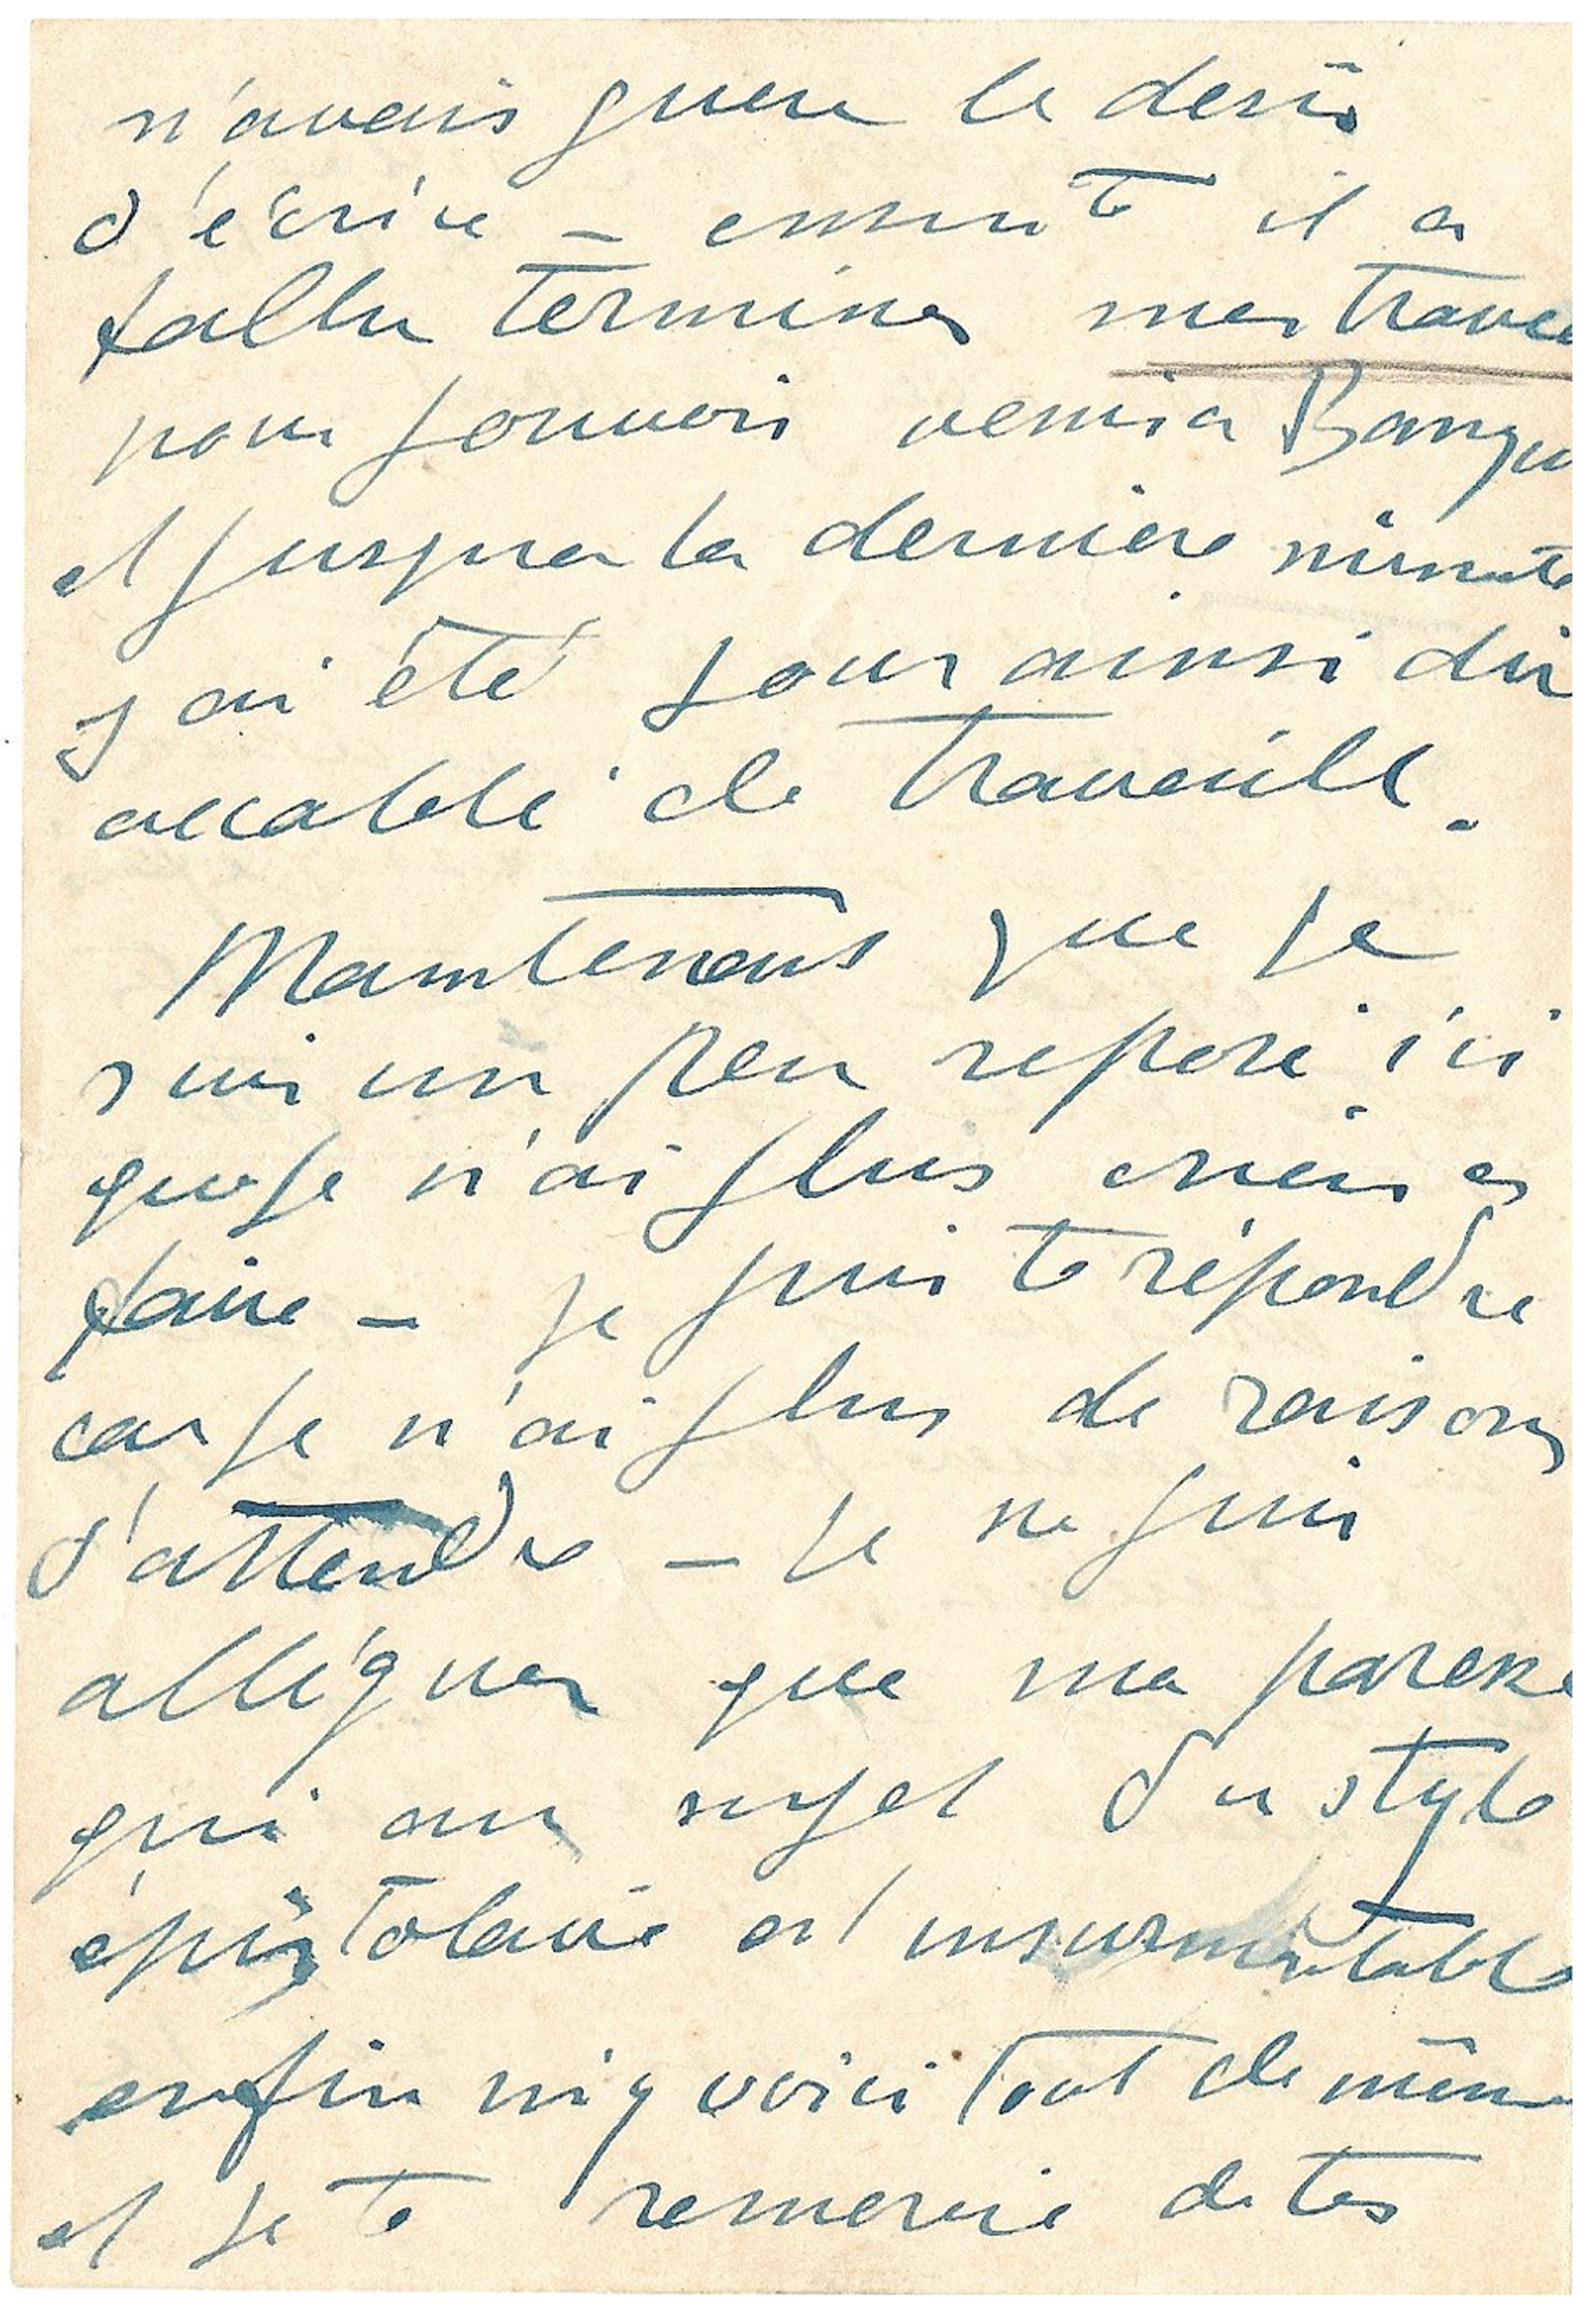 n'avais guere le desir
d'écrire – ensuite il a
fallu terminer mes travau
pour pouvoir venir a Banyu
et jusqua la derniere minute
j ai été pour ainsi dir
accablé de travaille.
Maintenant que je
suis un peu reposé ici
que je n'ai plus rien a
faire – je puis te répondre
car je n'ai plus de raisons
d'attendre – je ne puis
alléguer que ma paresse
qui au sujet du style
épistolaire est insurmontable
enfin m'y voici tout de même
et je te remercie de tes